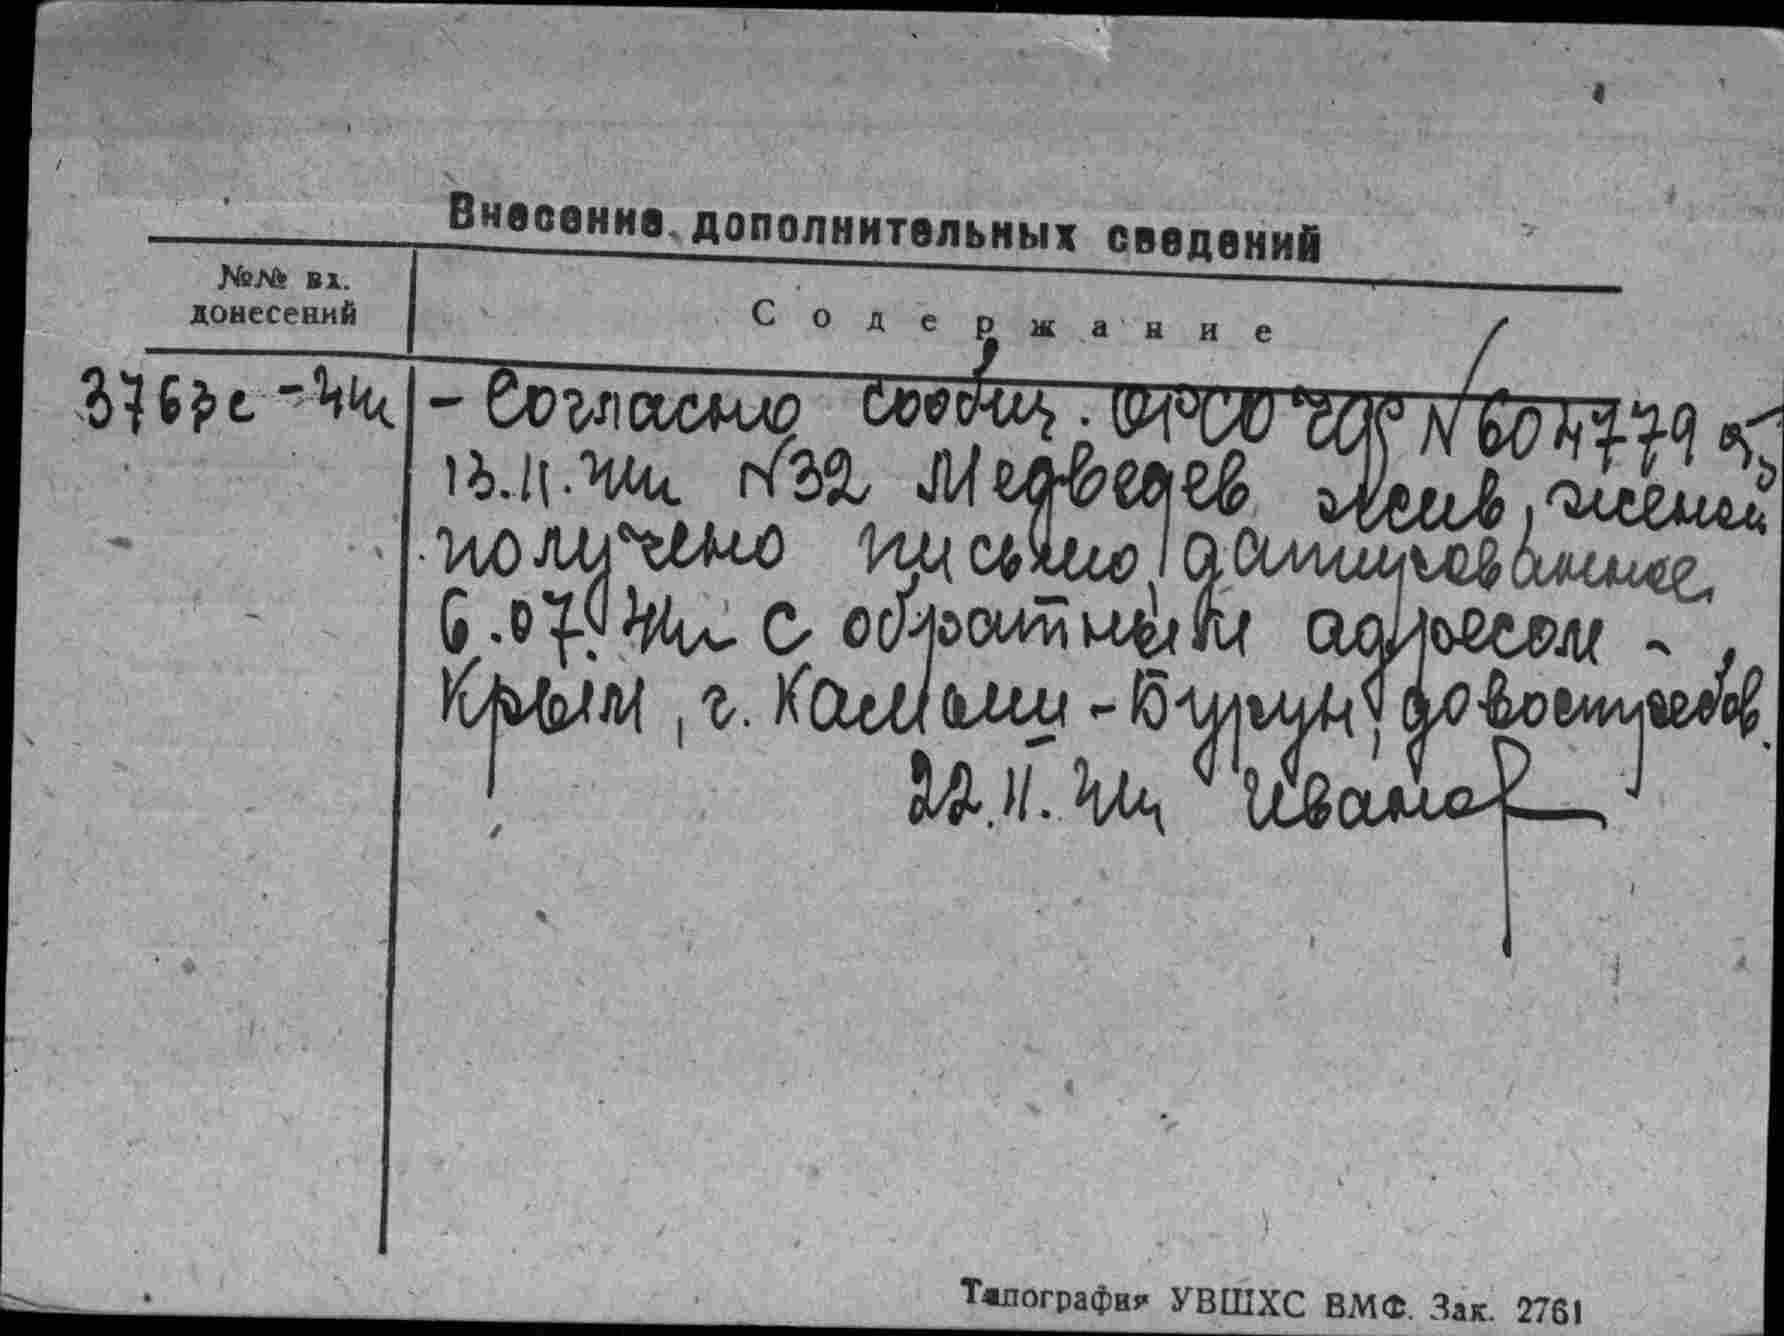 Внесение дополнительных сведений
№№ вх.
донесений
Содержание
3763с - 44г
- Согласно сообщ. ОРСО ЧФ №604779 от
13.11.44г №32 Медведев жив, женой
получено письмо, датированное
6.07.44г с обратным адресом -
Крым, г. Камыш-Бурун, довостребов.
22.11.44г Иванов
Типография УВШХС ВМФ. Зак. 2761